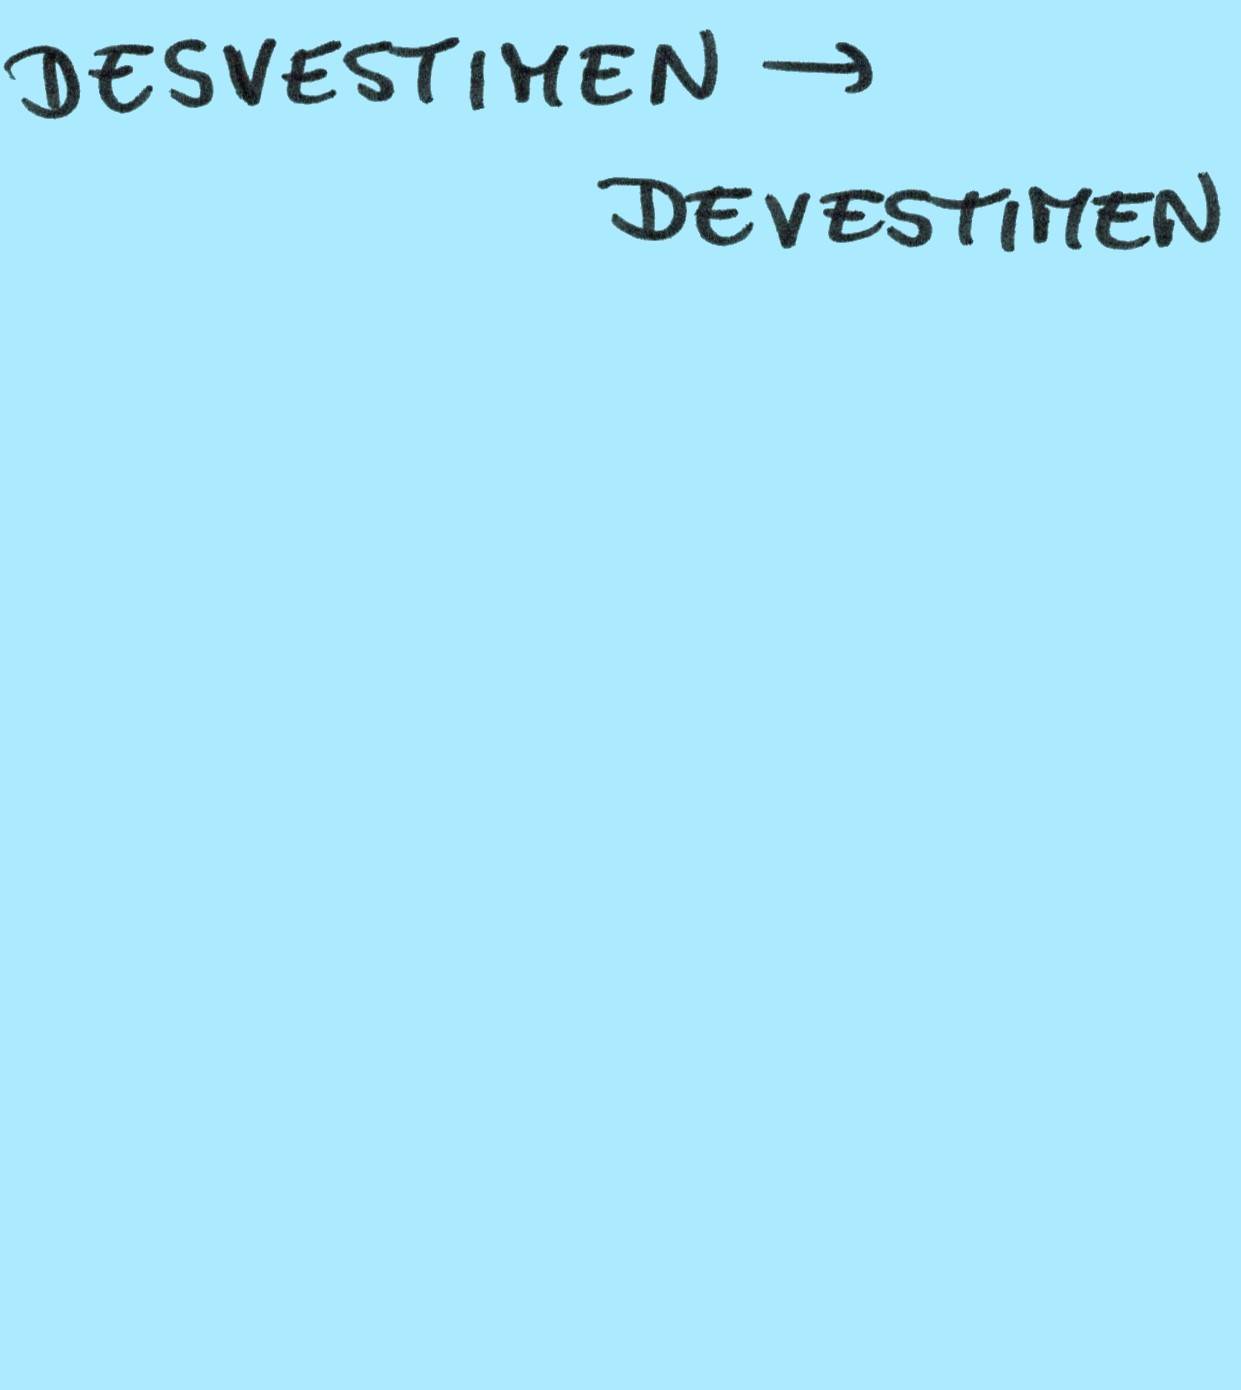 DESVESTIMEN →
DEVESTIMEN